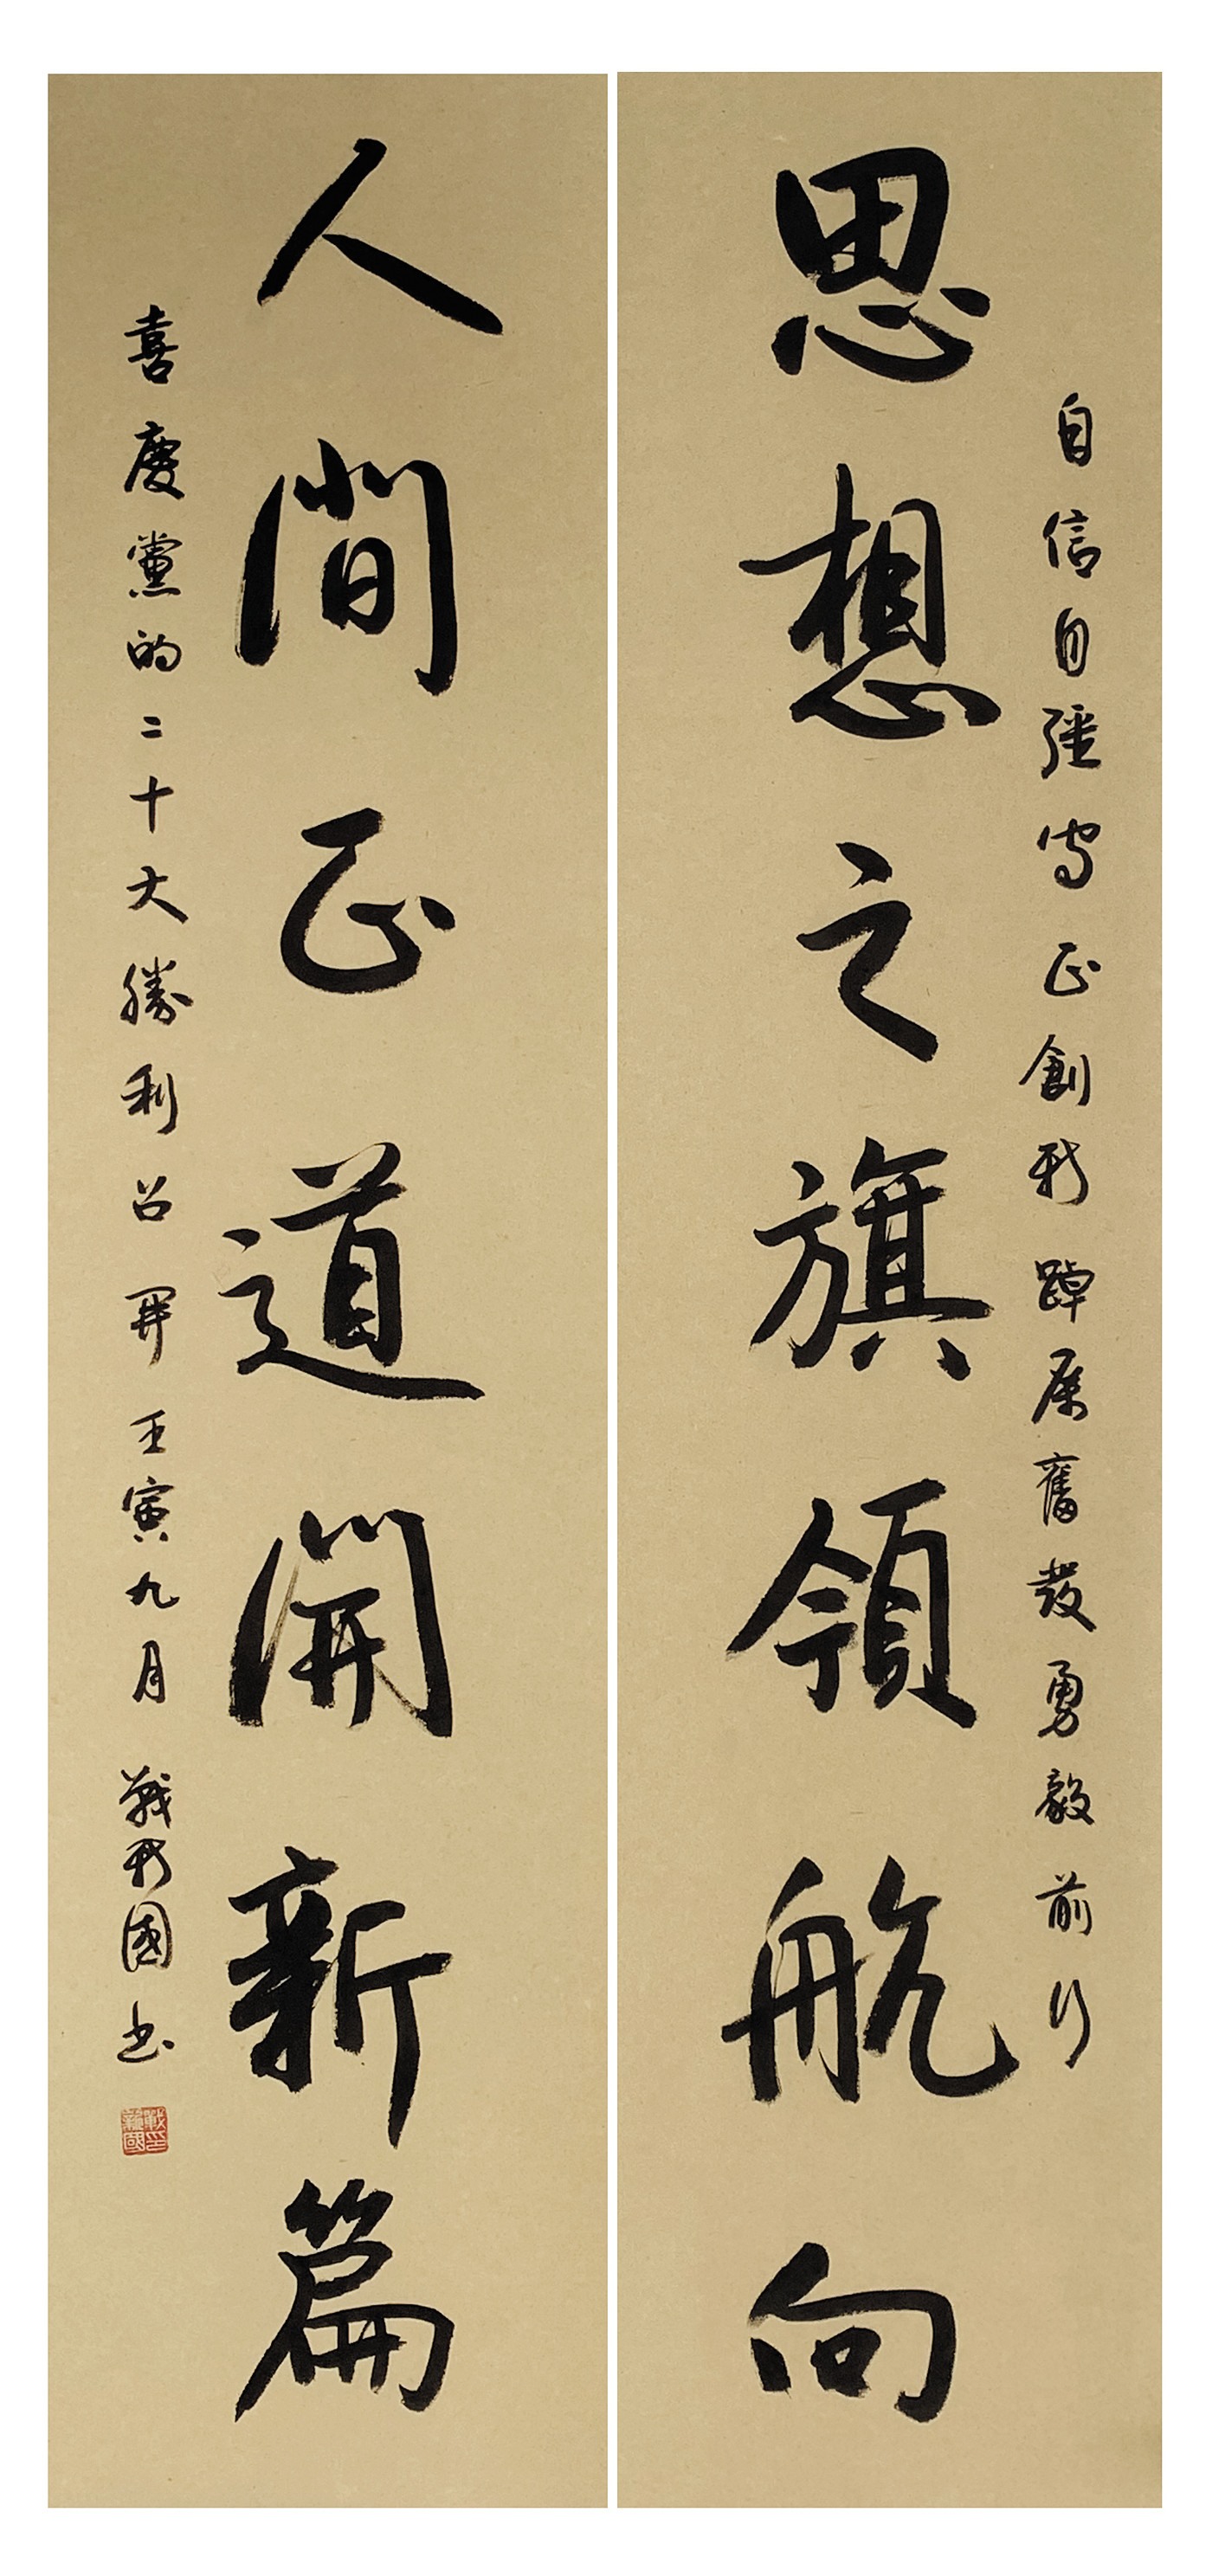 自信自强守正創新踔厲奮發勇毅前行
思想之旗領航向
人間正道開新篇
喜慶黨的二十大勝利召開壬寅九月戰新國书
戰新國印